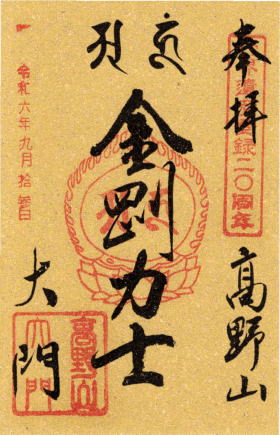 奉拝
高野山
世界遺産登録二〇周年
金剛力士
大門
令和六年九月拾参日
高野山
大門